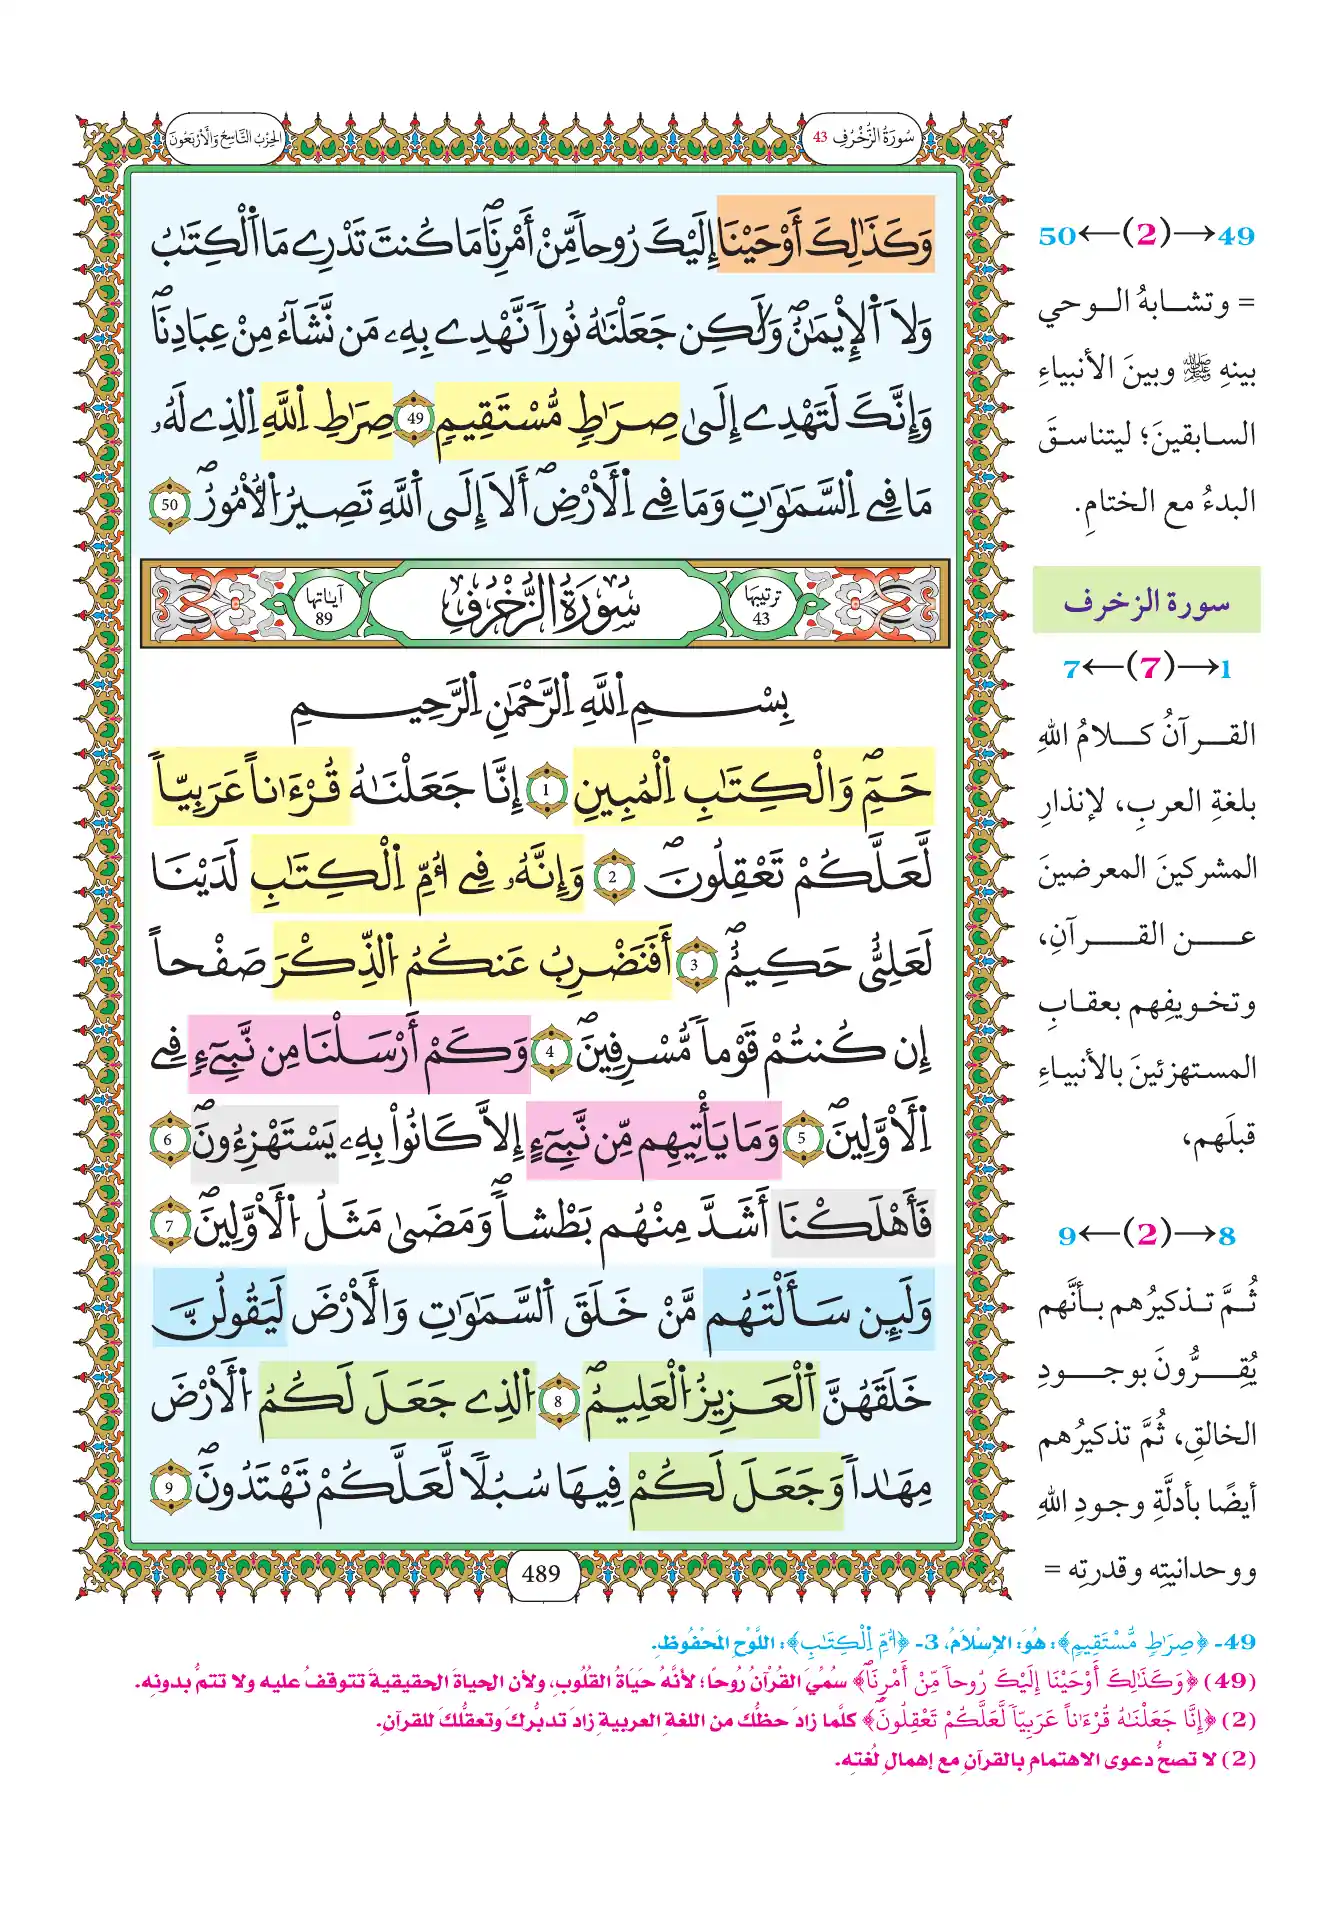 سُورَةُ الزُّخْرُفِ 43
الحِزْبُ التَّاسِعُ وَالْأَرْبَعُونَ
وَكَذَٰلِكَ أَوْحَيْنَا إِلَيْكَ رُوحاً مِّنْ أَمْرِنَاۖ مَا كُنتَ تَدْرِے مَا اَ۬لْكِتَٰبُ
وَلَا اَ۬لْإِيمَٰنُۖ وَلَٰكِن جَعَلْنَٰهُ نُوراً نَّهْدِے بِهِۦ مَن نَّشَآءُ مِنْ عِبَادِنَاۖ
وَإِنَّكَ لَتَهْدِے إِلَىٰ صِرَٰطٍ مُّسْتَقِيمٍ 49 صِرَٰطِ اِ۬للَّهِ اِ۬لذِے لَهُۥ
مَا فِے اِ۬لسَّمَٰوَٰتِ وَمَا فِے اِ۬لْأَرْضِۖ أَلَا إِلَى اَ۬للَّهِ تَصِيرُ اُ۬لْأُمُورُۖ 50
ترتيبها 43
سُورَةُ الزُّخْرُفِ
آياتها 89
بِسْمِ اِ۬للَّهِ اِ۬لرَّحْمَٰنِ اِ۬لرَّحِيمِ
حَمِٓۖ وَالْكِتَٰبِ اِ۬لْمُبِينِ 1 إِنَّا جَعَلْنَٰهُ قُرْءَٰناً عَرَبِيّاً
لَّعَلَّكُمْ تَعْقِلُونَۖ 2 وَإِنَّهُۥ فِے أُمِّ اِ۬لْكِتَٰبِ لَدَيْنَا
لَعَلِيٌّ حَكِيمٌۖ 3 أَفَنَضْرِبُ عَنكُمُ اُ۬لذِّكْرَ صَفْحاً
إِن كُنتُمْ قَوْماً مُّسْرِفِينَۖ 4 وَكَمْ أَرْسَلْنَا مِن نَّبِيٓءٍ فِے
اِ۬لْأَوَّلِينَۖ 5 وَمَا يَأْتِيهِم مِّن نَّبِيٓءٍ إِلَّا كَانُواْ بِهِۦ يَسْتَهْزِءُونَۖ 6
فَأَهْلَكْنَا أَشَدَّ مِنْهُم بَطْشاًۖ وَمَضَىٰ مَثَلُ اُ۬لْأَوَّلِينَۖ 7
وَلَئِن سَأَلْتَهُم مَّنْ خَلَقَ اَ۬لسَّمَٰوَٰتِ وَالْأَرْضَ لَيَقُولُنَّ
خَلَقَهُنَّ اَ۬لْعَزِيزُ اُ۬لْعَلِيمُۖ 8 اُ۬لذِے جَعَلَ لَكُمُ اُ۬لْأَرْضَ
مِهَٰداً وَجَعَلَ لَكُمْ فِيهَا سُبُلًا لَّعَلَّكُمْ تَهْتَدُونَۖ 9
489
49→(2)←50
= وتشابهُ الوحي
بينهِ ﷺ وبينَ الأنبياءِ
السابقينَ؛ ليتناسقَ
البدءُ مع الختامِ.
سورة الزخرف
1→(7)←7
القرآنُ كلامُ اللهِ
بلغةِ العربِ، لإنذارِ
المشركينَ المعرضينَ
عن القرآنِ،
وتخويفِهم بعقابِ
المستهزئينَ بالأنبياءِ
قبلَهم،
8→(2)←9
ثُمَّ تذكيرُهم بأنَّهم
يُقِرُّونَ بوجودِ
الخالقِ، ثُمَّ تذكيرُهم
أيضًا بأدلَّةِ وجودِ اللهِ
ووحدانيتِه وقدرتِه =
49- ﴿صِرَٰطٍ مُّسْتَقِيمٍ﴾: هُوَ: الإِسْلَامُ، 3- ﴿أُمِّ اِ۬لْكِتَٰبِ﴾: اللَّوْحِ المَحْفُوظِ.
(49) ﴿وَكَذَٰلِكَ أَوْحَيْنَا إِلَيْكَ رُوحاً مِّنْ أَمْرِنَاۖ﴾ سُمِّيَ القُرْآنُ رُوحًا؛ لأنَّهُ حَيَاةُ القُلُوبِ، ولأن الحياةَ الحقيقيةَ تتوقفُ عليه ولا تتمُّ بدونِه.
(2) ﴿إِنَّا جَعَلْنَٰهُ قُرْءَٰناً عَرَبِيّاً لَّعَلَّكُمْ تَعْقِلُونَۖ﴾ كلَّما زادَ حظُّك من اللغةِ العربيةِ زادَ تدبُّركَ وتعقُّلكَ للقرآنِ.
(2) لا تصحُّ دعوى الاهتمامِ بالقرآنِ مع إهمالِ لُغتِه.